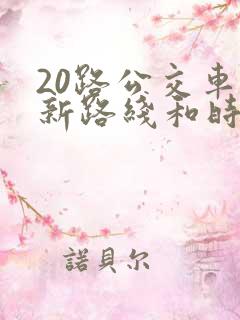 20路公交車
新路綫和時
諾貝尔